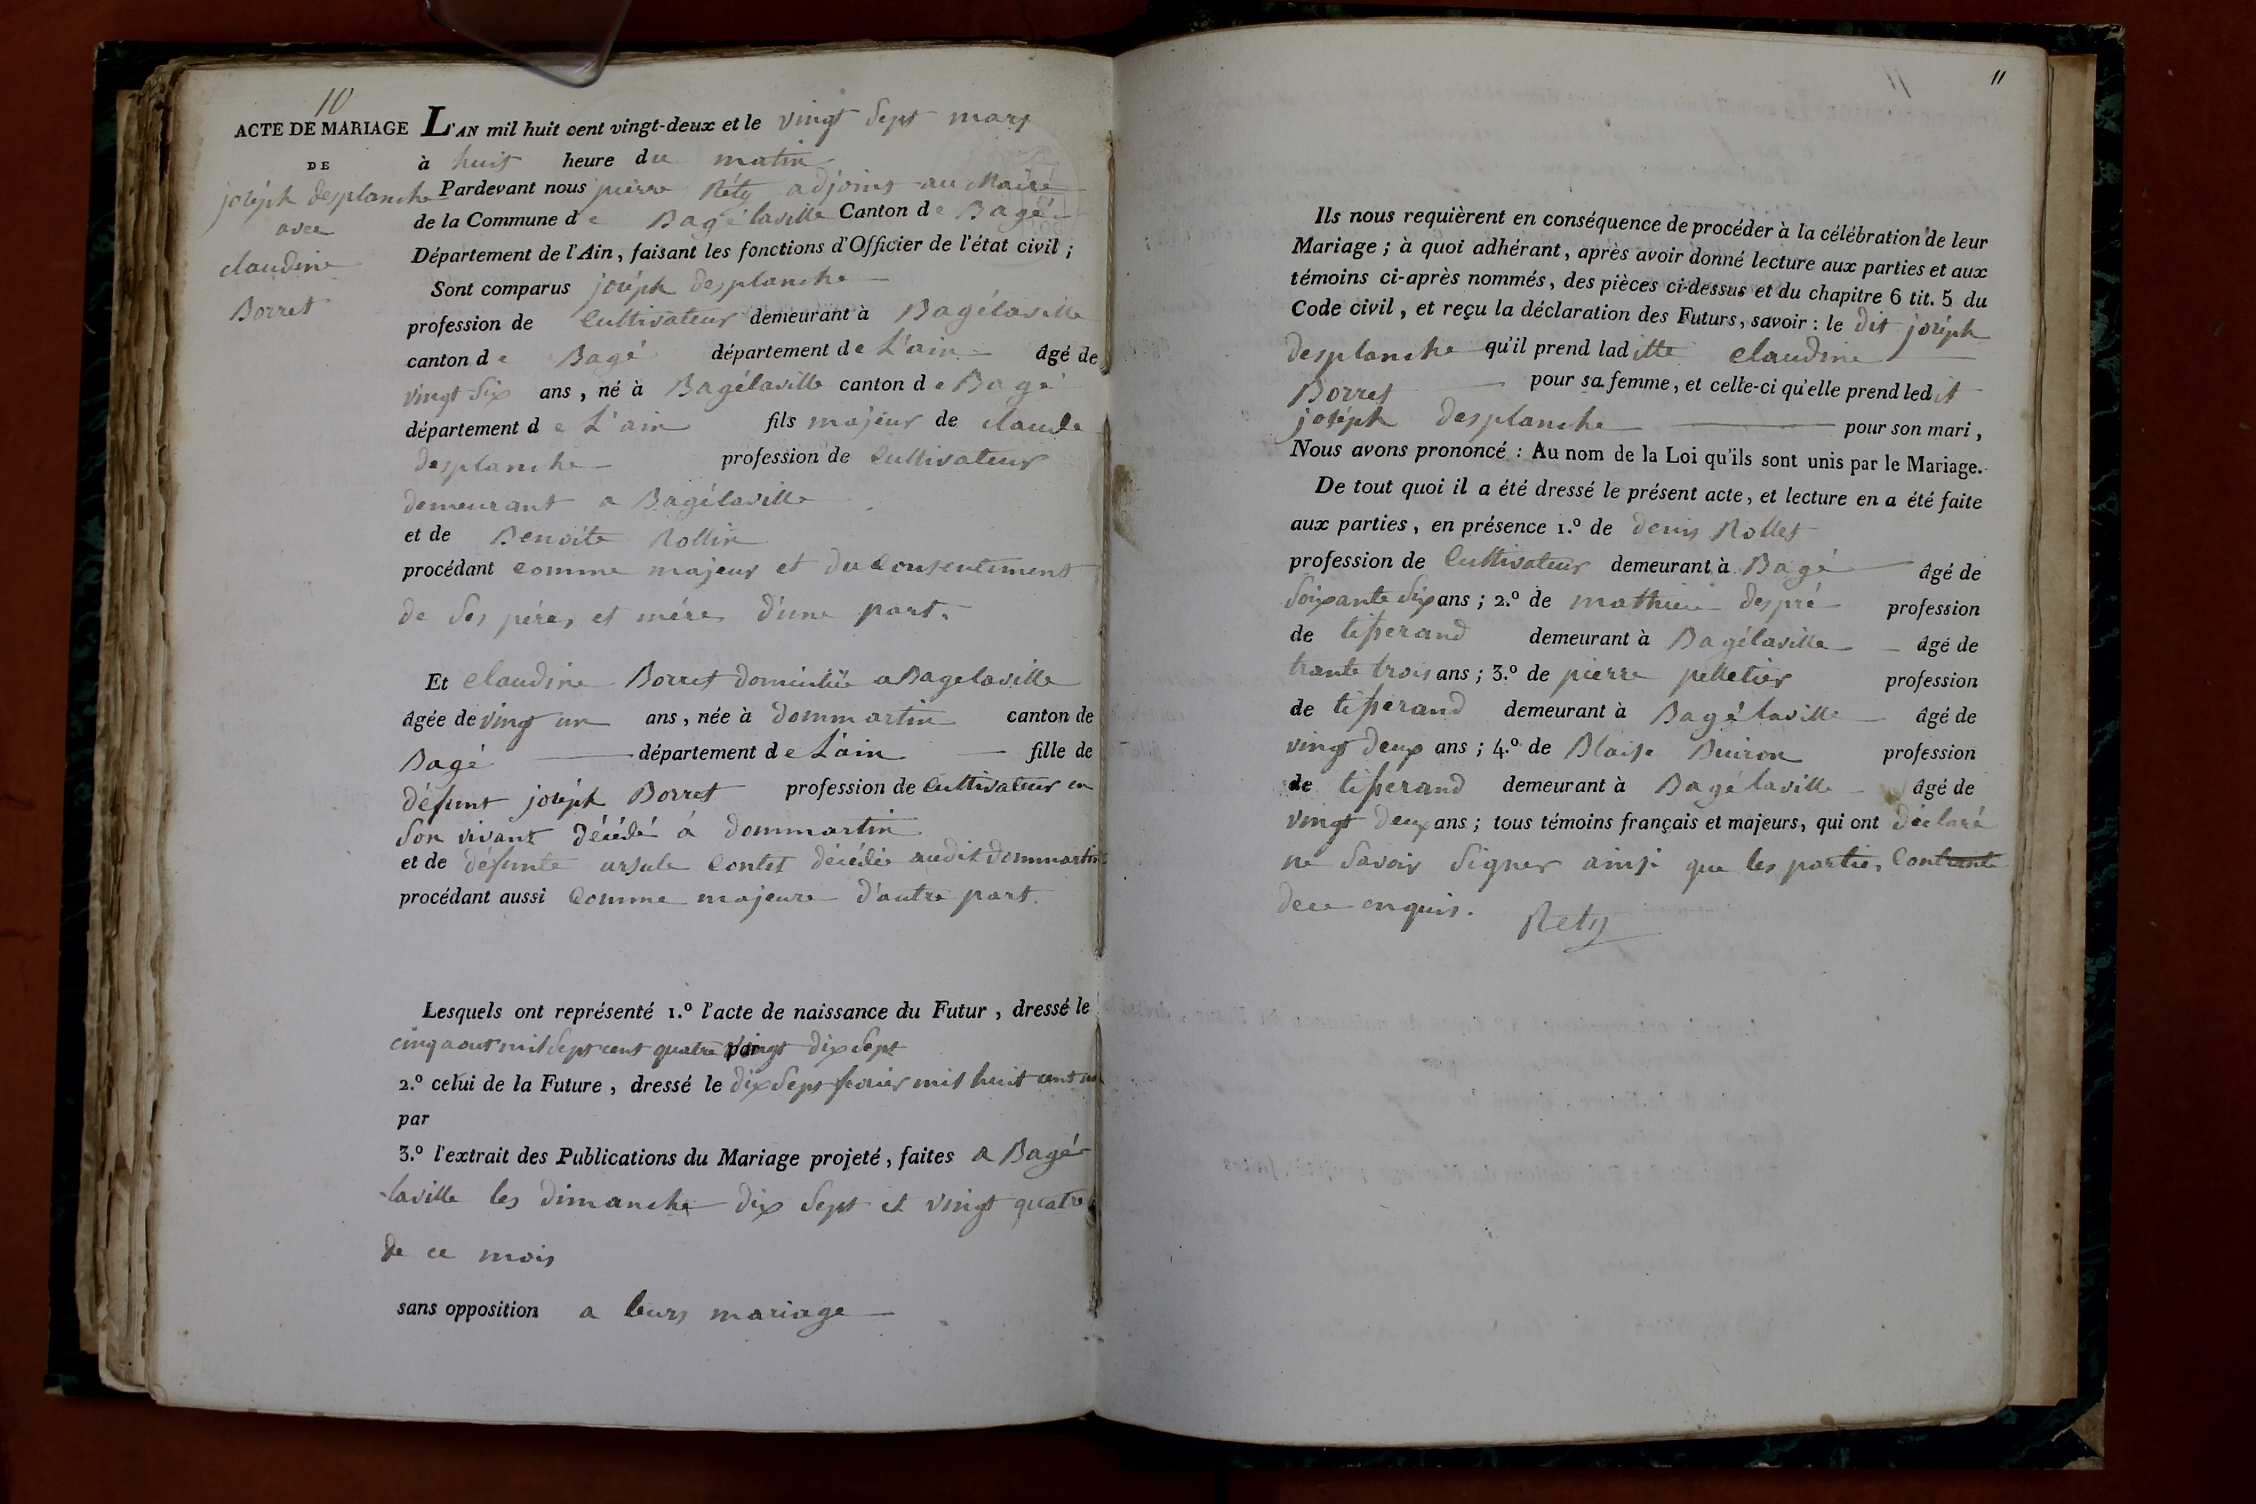 10
ACTE DE MARIAGE
DE
joséph desplanche
avec
claudine
Borret
L'AN mil huit cent vingt-deux et le vingt Sept mars
à huit heure du matin
Pardevant nous pierre Réty adjoint au Maire
de la Commune de Bagélaville Canton de Bagé
Département de l'Ain, faisant les fonctions d'Officier de l'état civil ;
Sont comparus joséph desplanche
profession de Cultivateur demeurant à Bagélaville
canton de Bagé département de L'ain âgé de
vingt Six ans, né à Bagélaville canton de Bagé
département de L'ain fils majeur de claude
desplanche profession de Cultivateur
demeurant a Bagélaville
et de Benoite Rollin
procédant comme majeur et du Consentement
de Ses pére, et mére d'une part.
Et claudine Borret domiciliée a Bagelaville
âgée de vingt un ans, née à dommartin canton de
Bagé département de L'ain fille de
défunt joséph Borret profession de Cultivateur en
Son vivant décédé á dommartin
et de défunte ursule Contet décédée audit dommartin
procédant aussi Comme majeure d'autre part.
Lesquels ont représenté 1.º l'acte de naissance du Futur, dressé le
cinq aout mil Sept cent quatre par vingt dix Sept
2.º celui de la Future, dressé le dix Sept fevrier mil huit cent un
par
3.º l'extrait des Publications du Mariage projeté, faites a Bagé
laville les dimanche dix Sept et vingt quatre
de ce mois
sans opposition a leurs mariage
11
Ils nous requièrent en conséquence de procéder à la célébration de leur
Mariage ; à quoi adhérant, après avoir donné lecture aux parties et aux
témoins ci-après nommés, des pièces ci-dessus et du chapitre 6 tit. 5 du
Code civil, et reçu la déclaration des Futurs, savoir : le dit joséph
desplanche qu'il prend laditte claudine
Borret pour sa femme, et celle-ci qu'elle prend ledit
joséph desplanche pour son mari,
Nous avons prononcé : Au nom de la Loi qu'ils sont unis par le Mariage.
De tout quoi il a été dressé le présent acte, et lecture en a été faite
aux parties, en présence 1.º de denis Rollet
profession de Cultivateur demeurant à Bagé âgé de
Soixante Six ans ; 2.º de mathieu despré profession
de tisserand demeurant à Bagélaville âgé de
trante trois ans ; 3.º de pierre pelletier profession
de tisserand demeurant à Bagélaville âgé de
vingt deux ans ; 4.º de Blaise Buiron profession
de tisserand demeurant à Bagélaville âgé de
vingt deux ans ; tous témoins français et majeurs, qui ont déclaré
ne Savoir Signer ainsi que les partie,
dece enquis. Rety